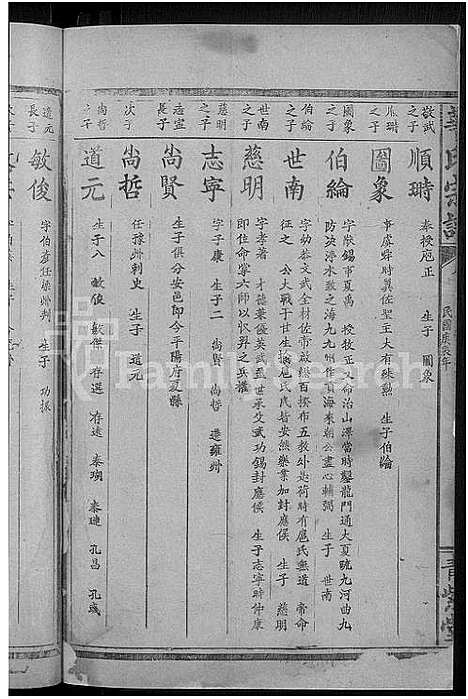 民國庚辰年
敬武之子
順時
奉授庖正 生子 圖象
順時之子
圖象
事虞舜時翼佐聖主大有殊勲 生子伯綸
圖象之子
伯綸
字猷錫市夏禹 授牧正又命治山澤當時鑿龍門通大夏疏九河曲九
防决渟水致之海九九州作貢海來朝公盡心輔弼 生子 世南
伯綸之子
世南
字劫恭文武全材佐帝啟總百揆布五教外是荷時有扈氏無道 帝命
征之 公大戰于甘生擒扈氏民皆安然樂業加封應侯 生子 慈明
世南之子
慈明
字孝著 才德兼優英武蓋世承父武功錫封應侯 生子志寧時仲康
即位命掌六師以收羿之兵權
慈明之子
志寧
字子康 生子二 尚賢 尚哲 遷雍州
志寧長子
尚賢
生子俱分安邑即今平陽府夏縣
次子
尚哲
任豫州刺史 生子 道元
尚哲之子
道元
生子八 敏俊 敏傑 存選 存遠 泰瑚 泰璉 孔昌 孔彧
道元長子
敏俊
字伯彥任揚州判 生子 功振
FamilySearch